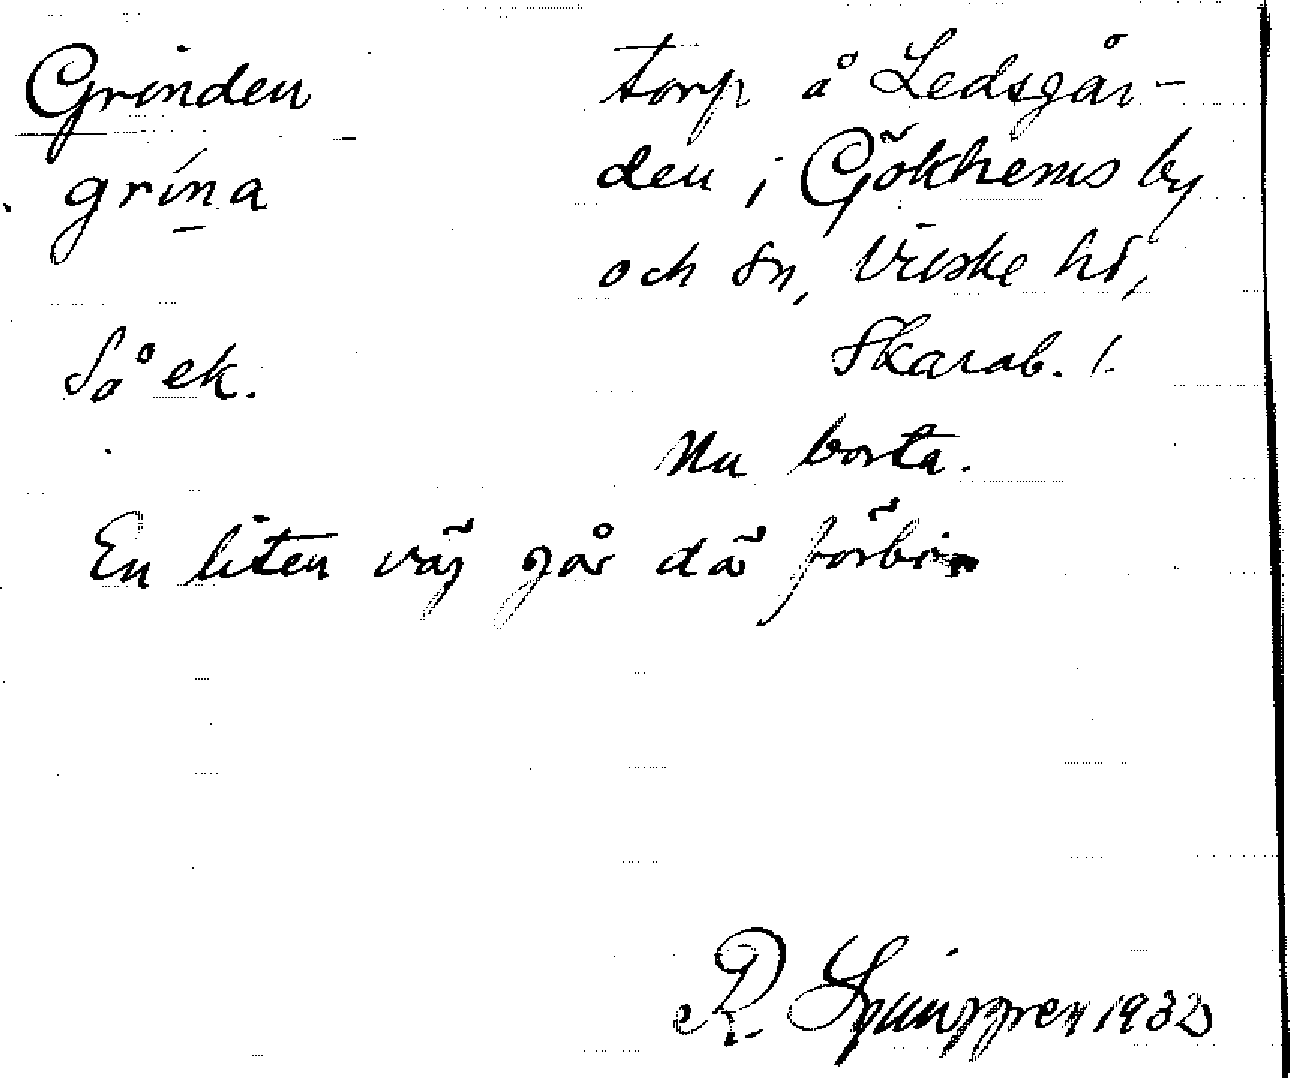 Grinden
grína
Så ek.
torp å Ledsgår-
den i Gökhems by
och sn, Vilske hd,
Skarab. l.
Nu borta.
En liten väg går där förbi
R. Ljunggren 1932